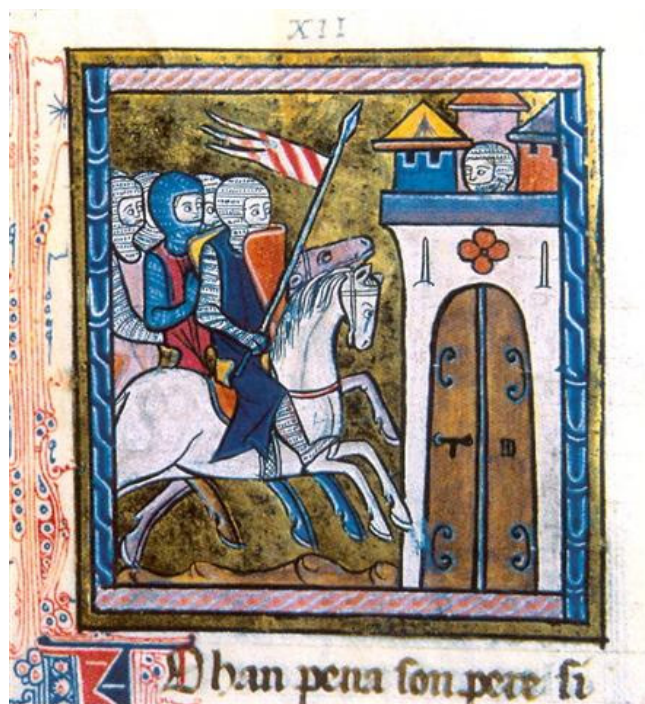 XII
IOhan pena son pere si